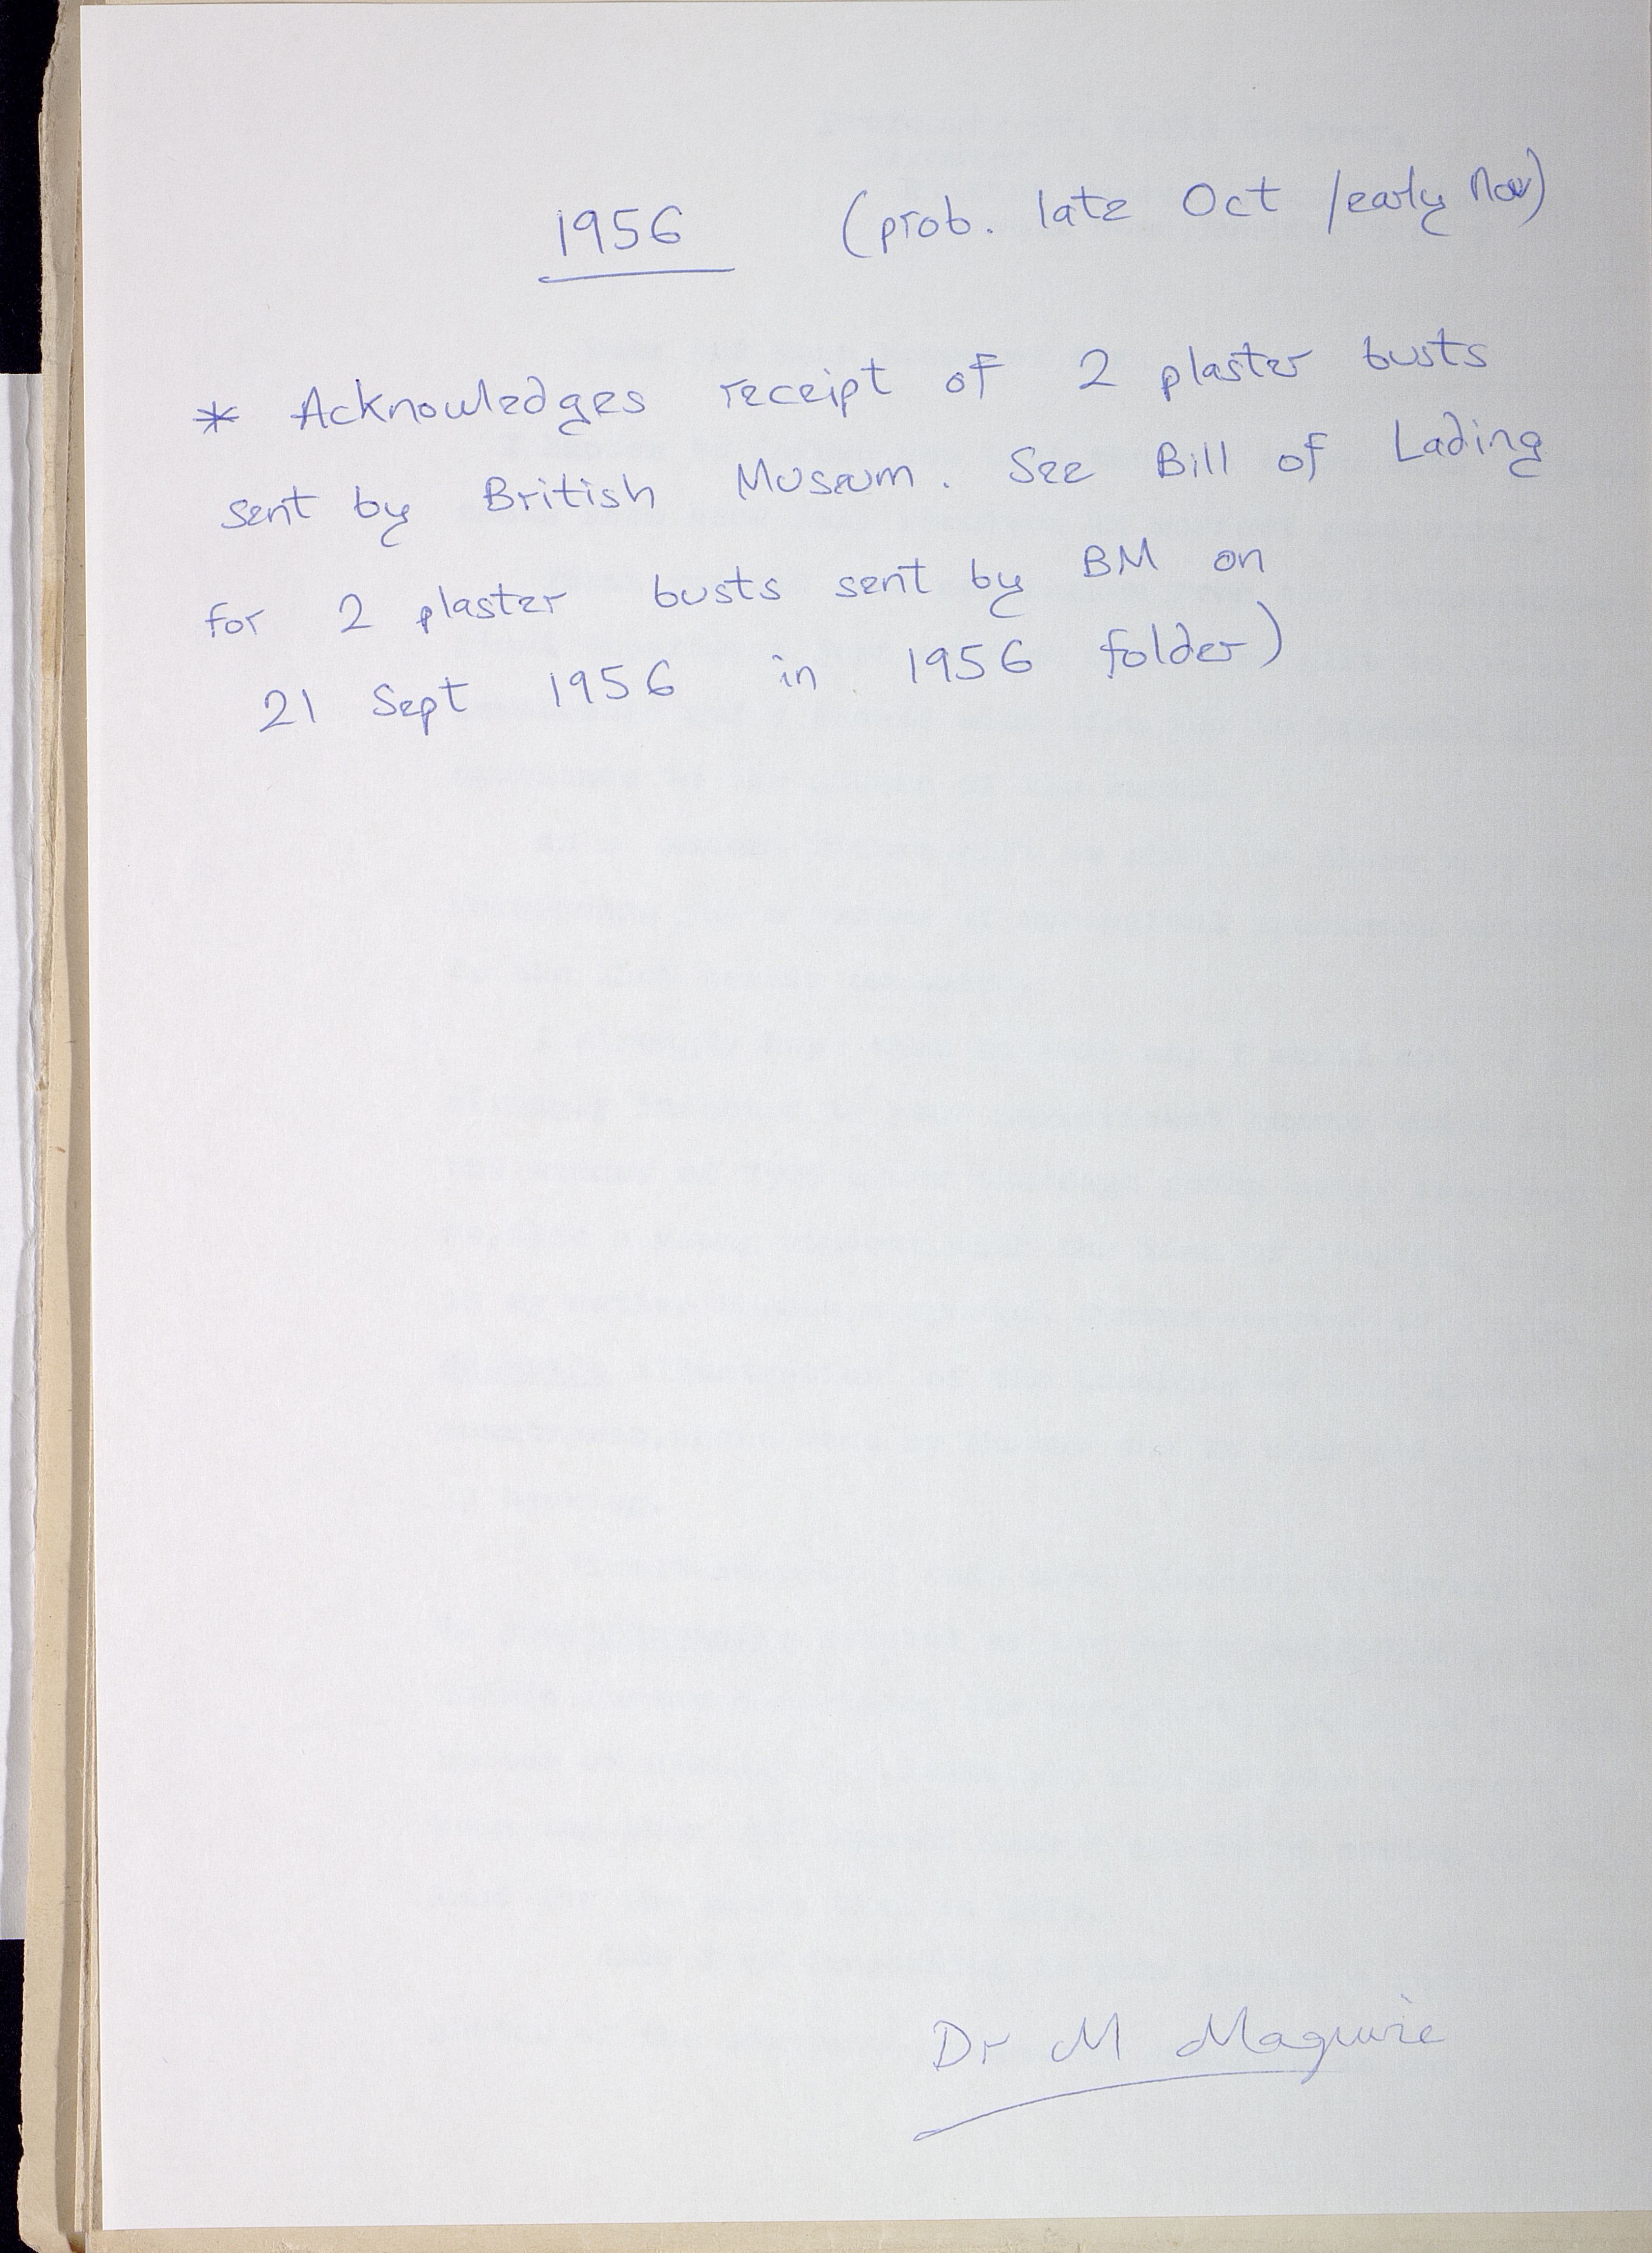 1956 (prob. late Oct /early Nov)
* Acknowledges receipt of 2 plaster busts
sent by British Museum. See Bill of Lading
for 2 plaster busts sent by BM on
21 Sept 1956 in 1956 folder)
Dr M Maguire